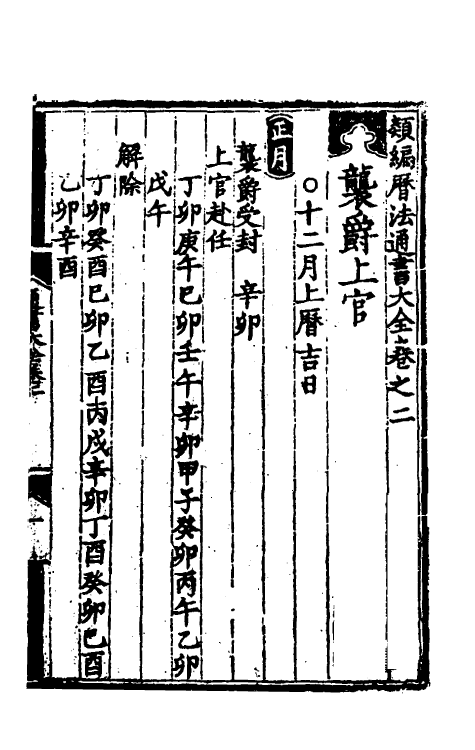 類編曆法通書大全卷之二
襲爵上官
○十二月上曆吉日
正月
襲爵受封　辛卯
上官赴任
丁卯庚午巳卯壬午辛卯甲子癸卯丙午乙卯
戊午
解除
丁卯癸酉巳卯乙酉丙戌辛卯丁酉癸卯巳酉
乙卯辛酉
一